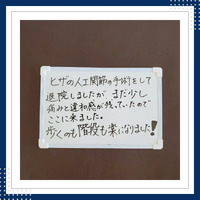 ヒザの人工関節の手術をして
退院しましたが、まだ少し
痛みと違和感が残っていたので
ここに来ました。
歩くのも階段も楽になりました!